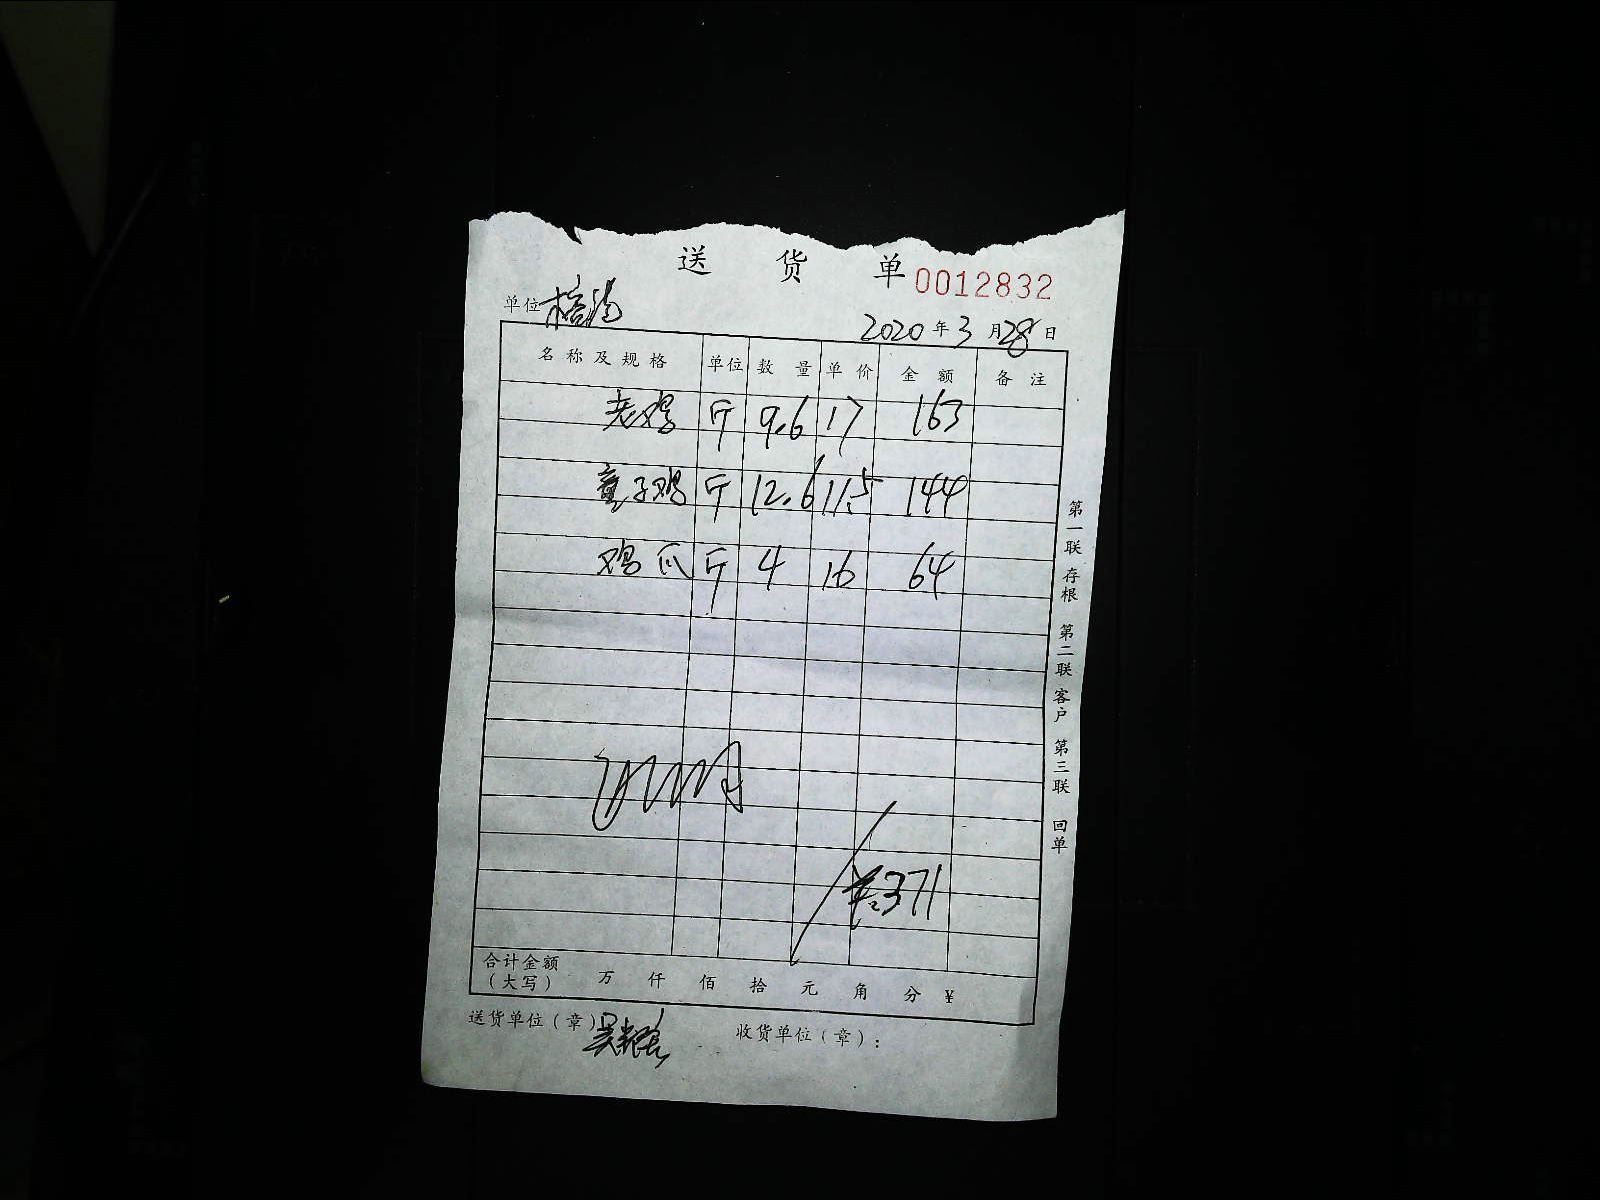 送货单 0012832
单位
2020年3月28日
名称及规格 单位 数量 单价 金额 备注
老鸡 斤 9.6 17 163
童子鸡 斤 12.6 11.5 144
鸡爪 斤 4 16 64
¥:371
合计金额（大写） 万 仟 佰 拾 元 角 分 ¥
送货单位（章） 收货单位（章）：
第一联 存根 第二联 客户 第三联 回单